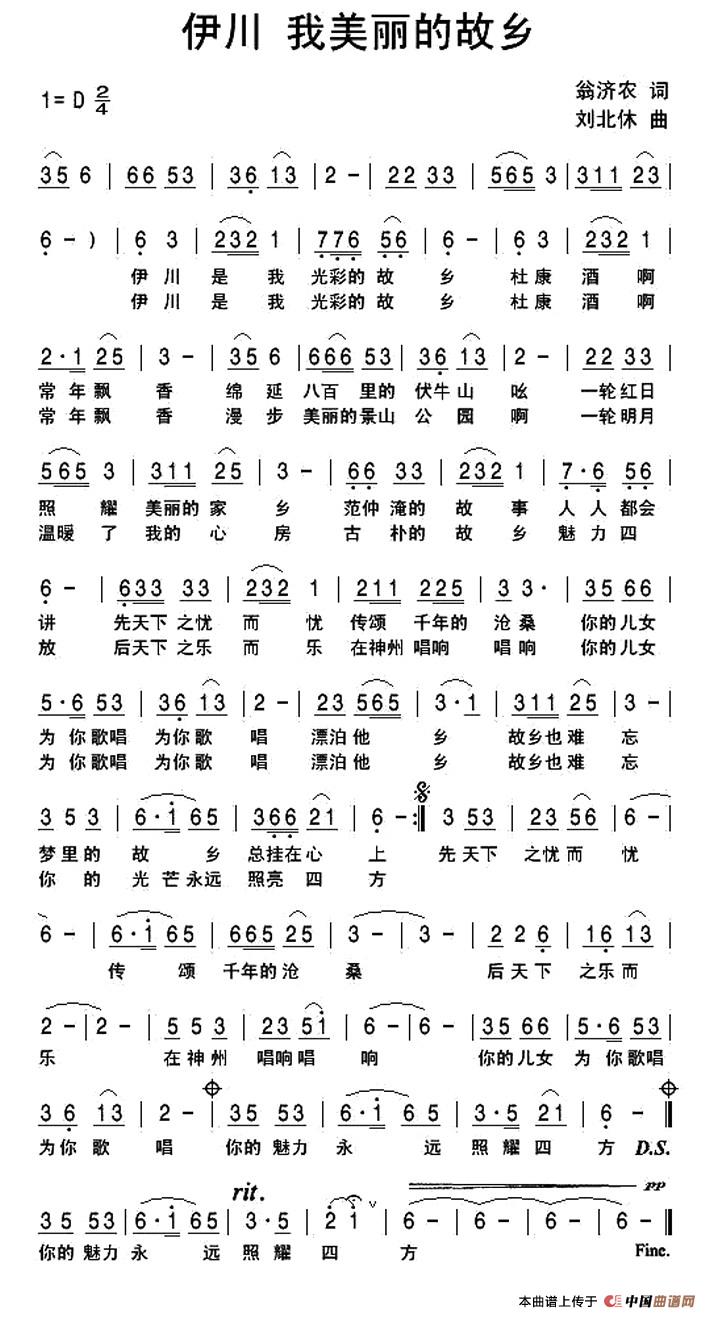 伊川 我美丽的故乡
翁济农 词
1= D 2/4
刘北休 曲
3 5 6 | 6 6 5 3 | 3 6 1 3 | 2 - | 2 2 3 3 | 5 6 5 3 | 3 1 1 2 3 |
6 - ) | 6 3 | 2 3 2 1 | 7 7 6 5 6 | 6 - | 6 3 | 2 3 2 1 |
伊 川 是 我 光彩的 故 乡 杜 康 酒 啊
伊 川 是 我 光彩的 故 乡 杜 康 酒 啊
2 · 1 2 5 | 3 - | 3 5 6 | 6 6 6 5 3 | 3 6 1 3 | 2 - | 2 2 3 3 |
常 年 飘 香 绵 延 八百 里的 伏牛 山 吆 一轮 红日
常 年 飘 香 漫 步 美丽的 景山 公 园 啊 一轮 明月
5 6 5 3 | 3 1 1 2 5 | 3 - | 6 6 3 3 | 2 3 2 1 | 7 · 6 5 6 |
照 耀 美丽的 家 乡 范仲 淹的 故 事 人 人 都会
温暖 了 我的 心 房 古 朴的 故 乡 魅 力 四
6 - | 6 3 3 3 3 | 2 3 2 1 | 2 1 1 2 2 5 | 3 3 · | 3 5 6 6 |
讲 先天下 之忧 而 忧 传颂 千年的 沧 桑 你的 儿女
放 后天下 之乐 而 乐 在神州 唱响 唱 响 你的 儿女
5 · 6 5 3 | 3 6 1 3 | 2 - | 2 3 5 6 5 | 3 · 1 | 3 1 1 2 5 | 3 - |
为 你 歌唱 为你 歌 唱 漂泊 他 乡 故乡也 难 忘
为 你 歌唱 为你 歌 唱 漂泊 他 乡 故乡也 难 忘
3 5 3 | 6 · 1 6 5 | 3 6 6 2 1 | 6 - :| 3 5 3 | 2 3 5 6 | 6 - |
梦 里 的 故 乡 总挂在 心 上 先 天下 之忧 而 忧
你 的 光 芒 永远 照亮 四 方
6 - | 6 · 1 6 5 | 6 6 5 2 5 | 3 - | 3 - | 2 2 6 | 1 6 1 3 |
传 颂 千年的 沧 桑 后 天 下 之乐 而
2 - | 2 - | 5 5 3 | 2 3 5 1 | 6 - | 6 - | 3 5 6 6 | 5 · 6 5 3 |
乐 在 神 州 唱响 唱 响 你的 儿女 为 你 歌唱
3 6 1 3 | 2 - | 3 5 5 3 | 6 · 1 6 5 | 3 · 5 2 1 | 6 - ‖
为你 歌 唱 你的 魅力 永 远 照 耀 四 方 D.S.
rit. pp
3 5 5 3 | 6 · 1 6 5 | 3 · 5 | 2 1 | 6 - | 6 - | 6 - | 6 - ‖
你的 魅力 永 远 照 耀 四 方 Fine.
本曲谱上传于 中国曲谱网